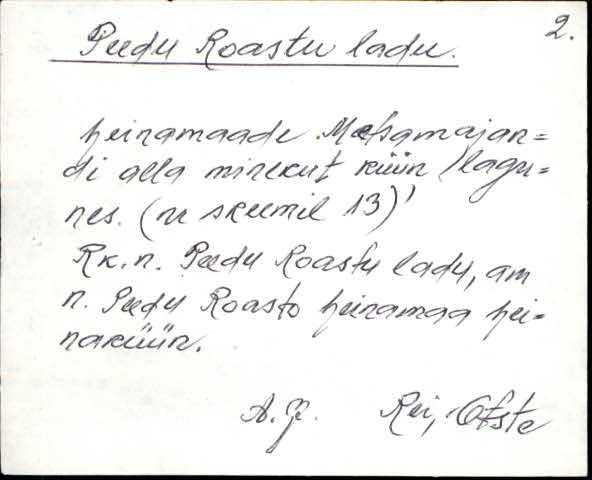 2.
Peedu Roastu ladu.
heinamaade Metsamajan=
di alla minekut küün lagu=
nes. (nr skeemil 13)
Rk. n. Peedu Roastu ladu, am
n. Peedu Roasto heinamaa hei=
naküün.
A. P. Rei, Otste